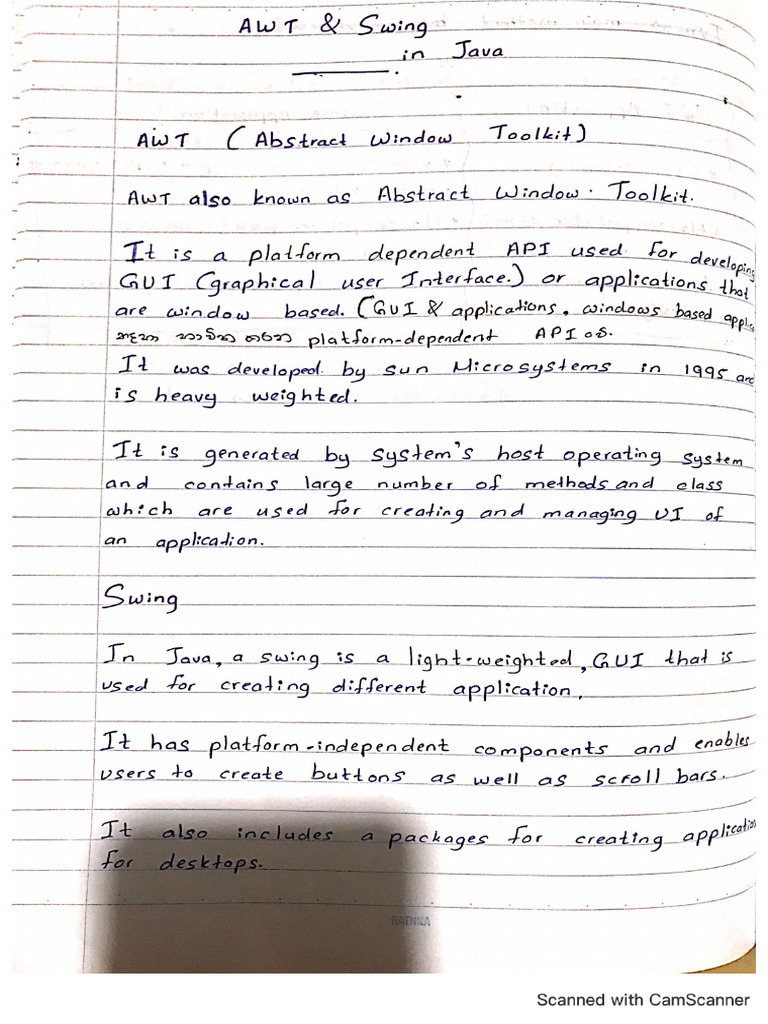 AWT & Swing
in Java
AWT (Abstract Window Toolkit)
AWT also known as Abstract Window. Toolkit.
It is a platform dependent API used for developing
GUI (graphical user Interface.) or applications that
are window based. (GUI & applications, windows based applic
හදන භාවිතා වෙන platform-dependent API එකී.
It was developed by sun Microsystems in 1995 and
is heavy weighted.
It is generated by system's host operating system
and contains large number of methods and class
which are used for creating and managing UI of
an application.
Swing
In Java, a swing is a light-weighted, GUI that is
used for creating different application.
It has platform-independent components and enables
users to create buttons as well as scroll bars.
It also includes a packages for creating application
for desktops.
RATHNA
Scanned with CamScanner